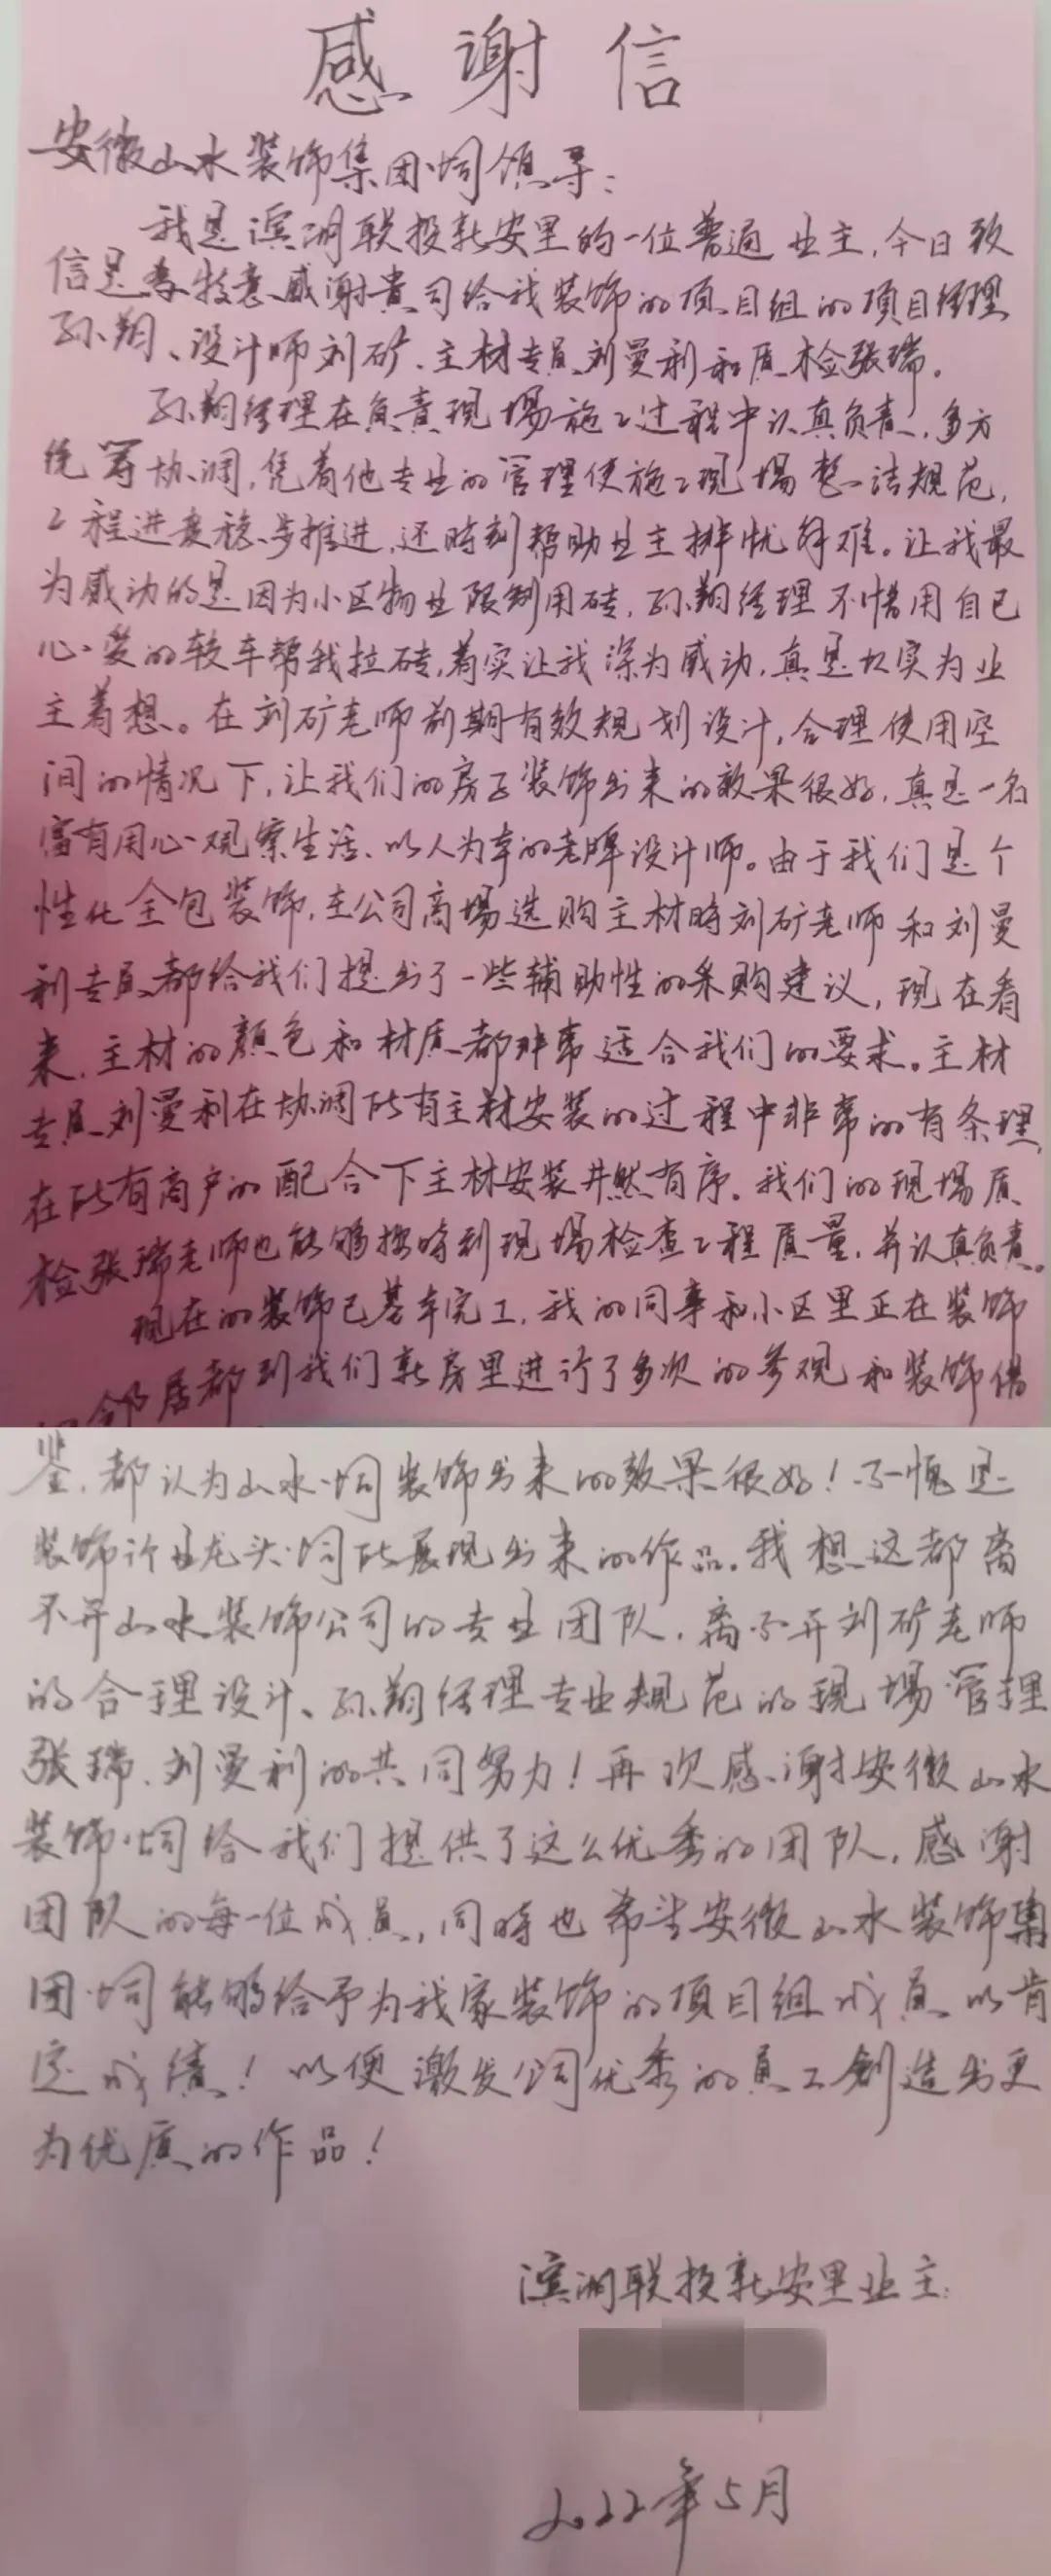 感谢信
安徽山水装饰集团公司领导：
我是滨湖联投新安里的一位普通业主，今日致
信是特意感谢贵司给我装饰的项目组的项目经理
孙翔、设计师刘矿、主材专员刘曼利和质检张瑞。
孙翔经理在负责现场施工过程中认真负责，多方
统筹协调，凭着他专业的管理使施工现场整洁规范，
工程进度稳步推进，还时刻帮助业主排忧解难。让我最
为感动的是因为小区物业限制用砖，孙翔经理不惜用自己
心爱的轿车帮我拉砖，着实让我深为感动，真是切实为业
主着想。在刘矿老师前期有效规划设计，合理使用空
间的情况下，让我们的房子装饰出来的效果很好，真是一名
富有用心观察生活、以人为本的老牌设计师。由于我们是个
性化全包装饰，在公司商场选购主材时刘矿老师和刘曼
利专员都给我们提出了一些辅助性的采购建议，现在看
来，主材的颜色和材质都非常适合我们的要求。主材
专员刘曼利在协调所有主材安装的过程中非常的有条理，
在所有商户的配合下主材安装井然有序。我们的现场质
检张瑞老师也能够按时到现场检查工程质量，并认真负责。
现在的装饰已基本完工，我的同事和小区里正在装饰
的邻居都到我们新房里进行了多次的参观和装饰借
鉴，都认为山水公司装饰出来的效果很好！不愧是
装饰行业龙头公司所展现出来的作品。我想这都离
不开山水装饰公司的专业团队，离不开刘矿老师
的合理设计、孙翔经理专业规范的现场管理
张瑞、刘曼利的共同努力！再次感谢安徽山水
装饰公司给我们提供了这么优秀的团队，感谢
团队的每一位成员，同时也希望安徽山水装饰集
团公司能够给予为我家装饰的项目组成员以肯
定成绩！以便激发公司优秀的员工创造出更
为优质的作品！
滨湖联投新安里业主：
2022年5月